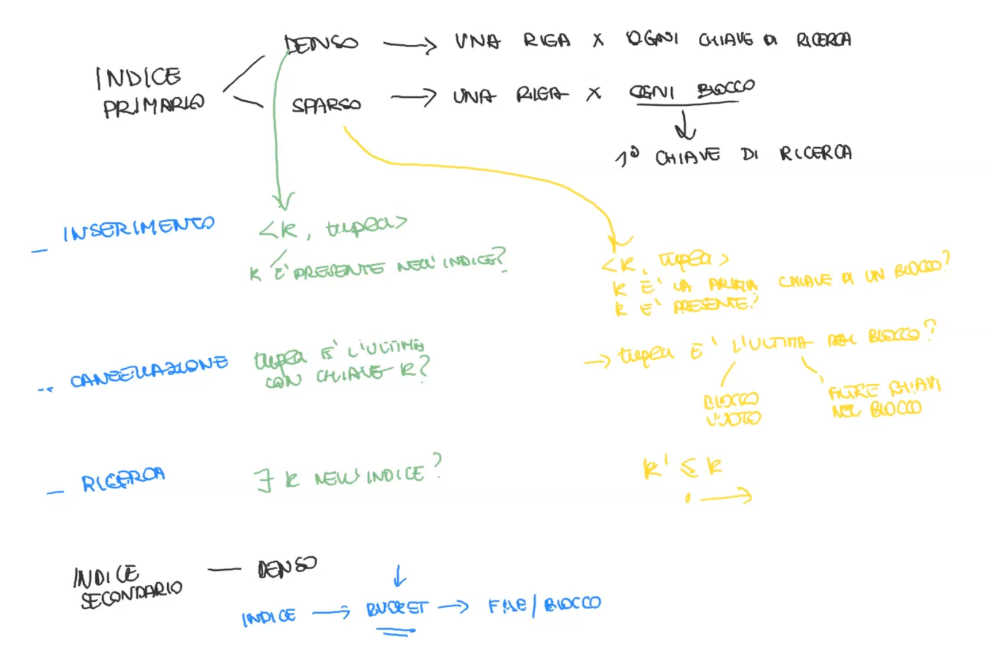 INDICE
PRIMARIO
DENSO → UNA RIGA X OGNI CHIAVE DI RICERCA
SPARSO → UNA RIGA X OGNI BLOCCO
1ª CHIAVE DI RICERCA
- INSERIMENTO
<K, tupla>
K E' PRESENTE NELL'INDICE?
<K, tupla>
K E' LA PRIMA CHIAVE DI UN BLOCCO?
K E' PRESENTE?
- CANCELLAZIONE
tupla E' L'ULTIMA
CON CHIAVE K?
→ tupla E' L'ULTIMA DEL BLOCCO?
BLOCCO
VUOTO
ALTRE CHIAVI
NEL BLOCCO
- RICERCA
∃ K NELL'INDICE?
K' ≤ K
INDICE
SECONDARIO
— DENSO
INDICE → BUCKET → FILE/BLOCCO